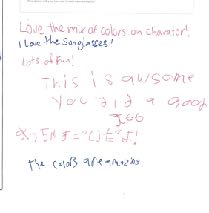 Love the mix of colors on character!
I Love the Sunglasses!
Lots of Fun!
This is awsome
You did a good
Job
The colors are